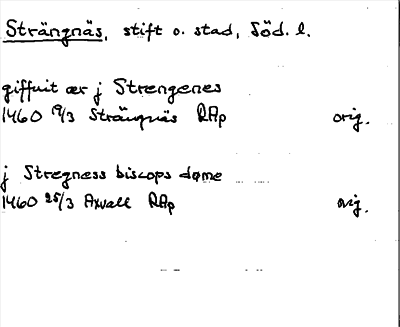 Strängnäs, stift o. stad, Söd. l.
giffuit ær j Strengenes
1460 9/3 Strängnäs RAp orig.
j Stregness biscops døme
1460 25/3 Axvall RAp orig.